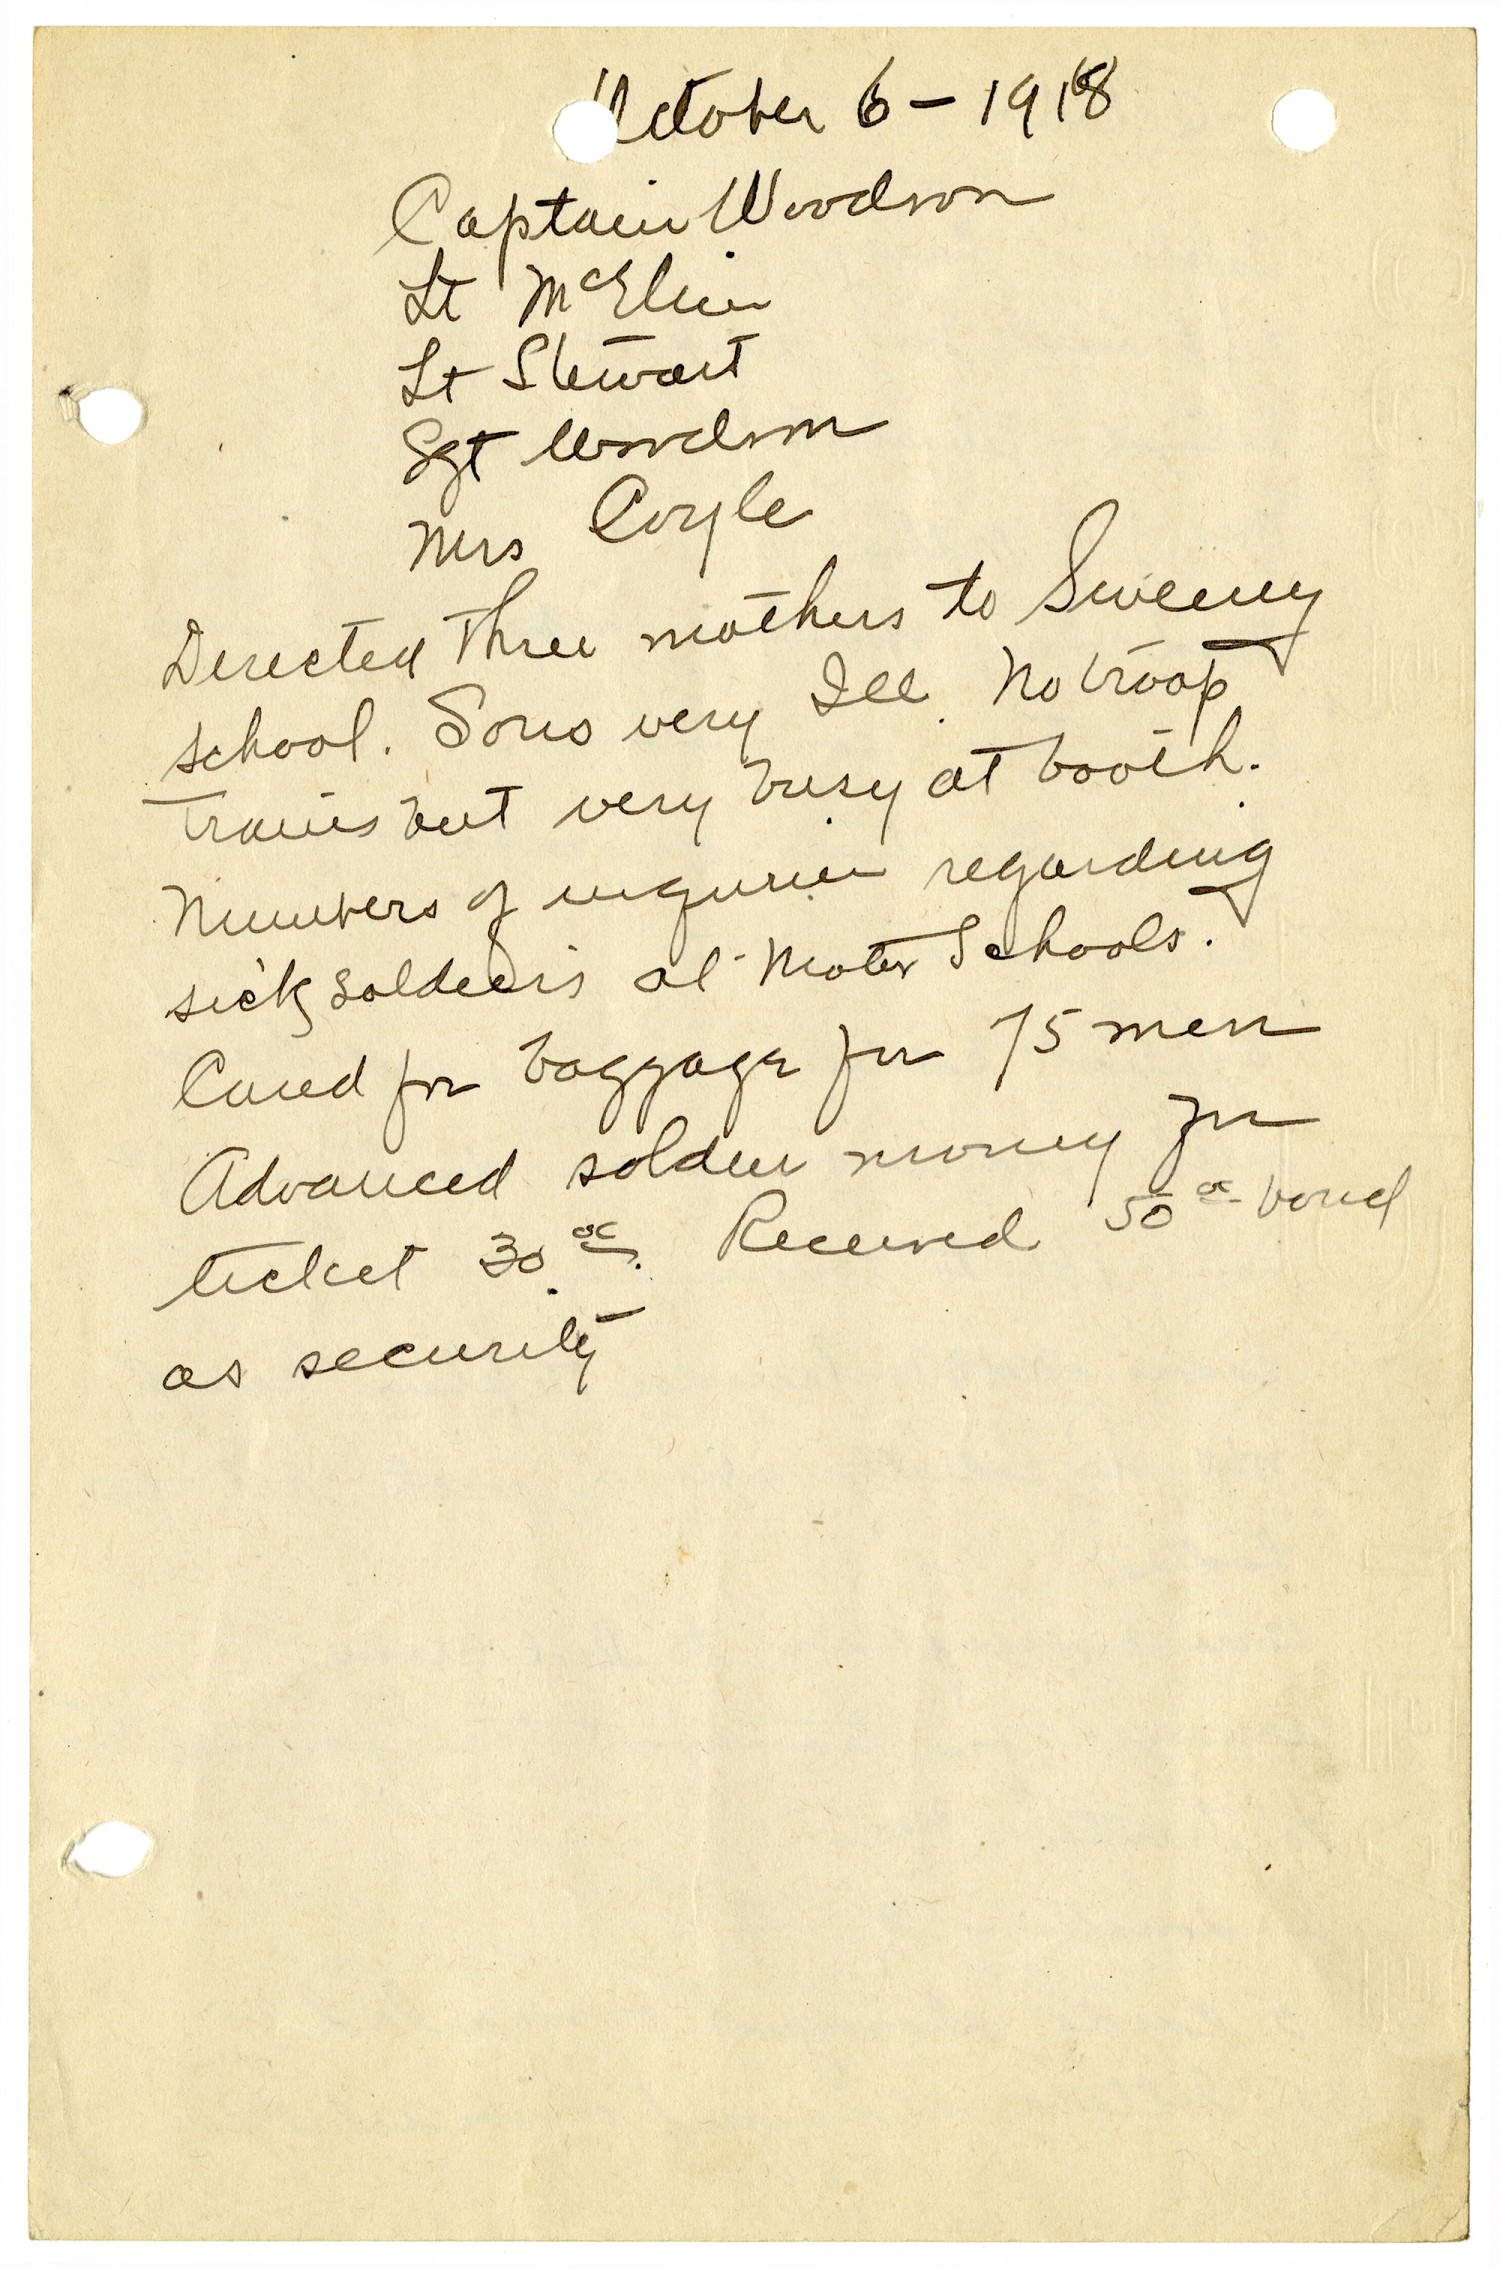 October 6 - 1918
Captain Woodson
Lt
Lt Stewart
Sgt Woodson
Mrs Coyle
Directed three mothers to Sweeny
school. Sons very Ill. No troop
trains but very busy at booth.
Numbers of inquiries regarding
sick soldiers at Motor Schools.
Cared for baggage for 75 men
Advanced soldier money for
ticket 30 oc. Received 50 oc bond
as security